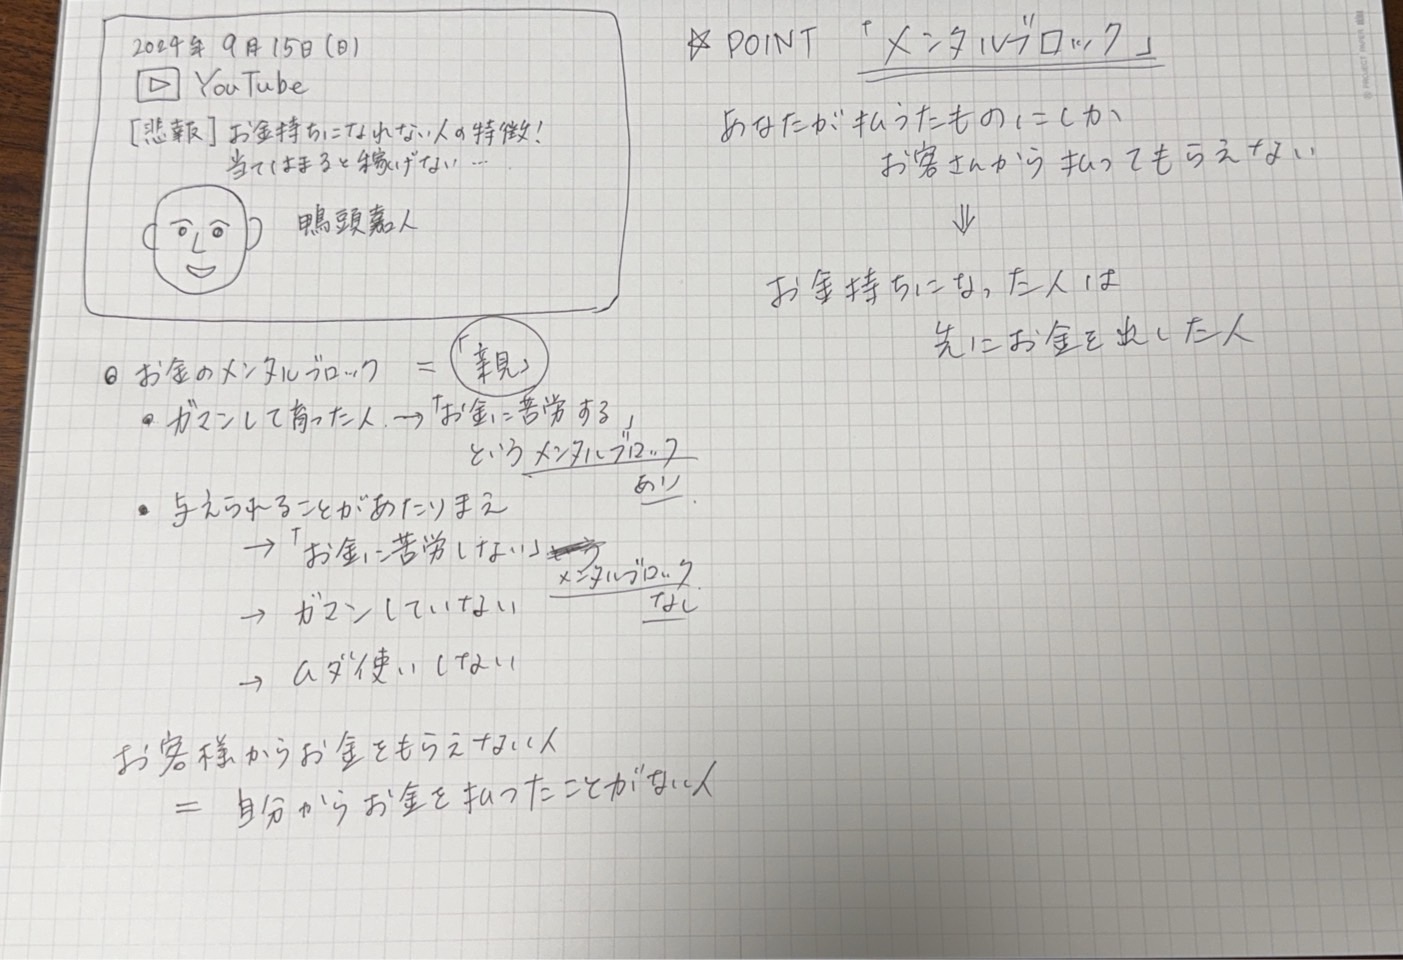 2024年 9月15日(日)
YouTube
[悲報] お金持ちになれない人の特徴!
当てはまると稼げない…
鴨頭嘉人
お金のメンタルブロック = 「親」
・ガマンして育った人 → 「お金に苦労する」
という メンタルブロック
あり
・与えられることがあたりまえ
→ 「お金に苦労しない」
メンタルブロック
なし
→ ガマンしていない
→ ムダ使いしない
お客様からお金をもらえない人
= 自分からお金を払ったことがない人
☆ POINT 「メンタルブロック」
あなたが払うたものにしか
お客さんから払ってもらえない
⇓
お金持ちになった人は
先にお金を出した人